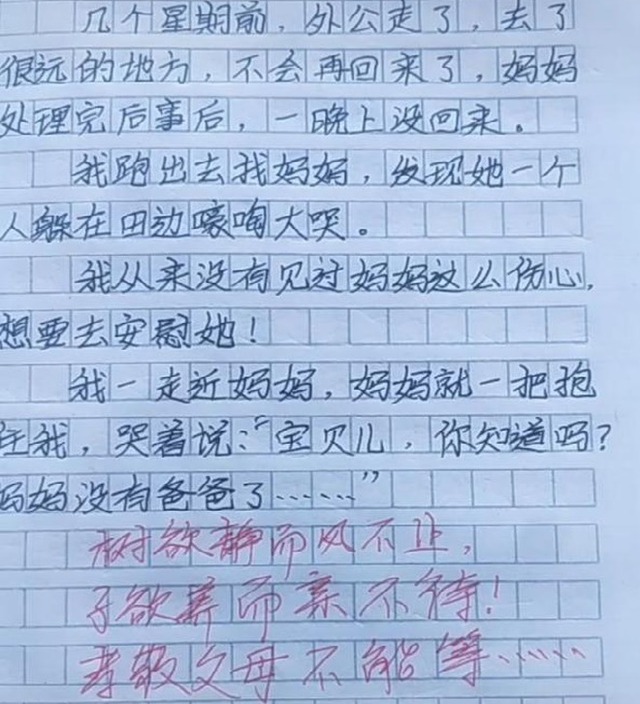 几个星期前，外公走了，去了
很远的地方，不会再回来了，妈妈
处理完后事后，一晚上没回来。
我跑出去找妈妈，发现她一个
人躲在田边嚎啕大哭。
我从来没有见过妈妈这么伤心，
想要去安慰她！
我一走近妈妈，妈妈就一把抱
住我，哭着说：“宝贝儿，你知道吗？
妈妈没有爸爸了……”
树欲静而风不止，
子欲养而亲不待！
孝敬父母不能等……